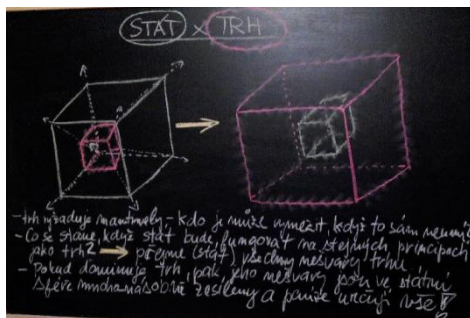 STÁT x TRH
- trh vyžaduje mantinely - kdo je může vymezit, když to sám neumí
- Co se stane, když stát bude fungovat na stejných principech
jako trh? → přejme (stát) všechny nešvary trhu
- Pokud dominuje trh, pak jeho nešvary jsou ve státní
sféře mnohanásobně zesíleny a peníze určují vše!